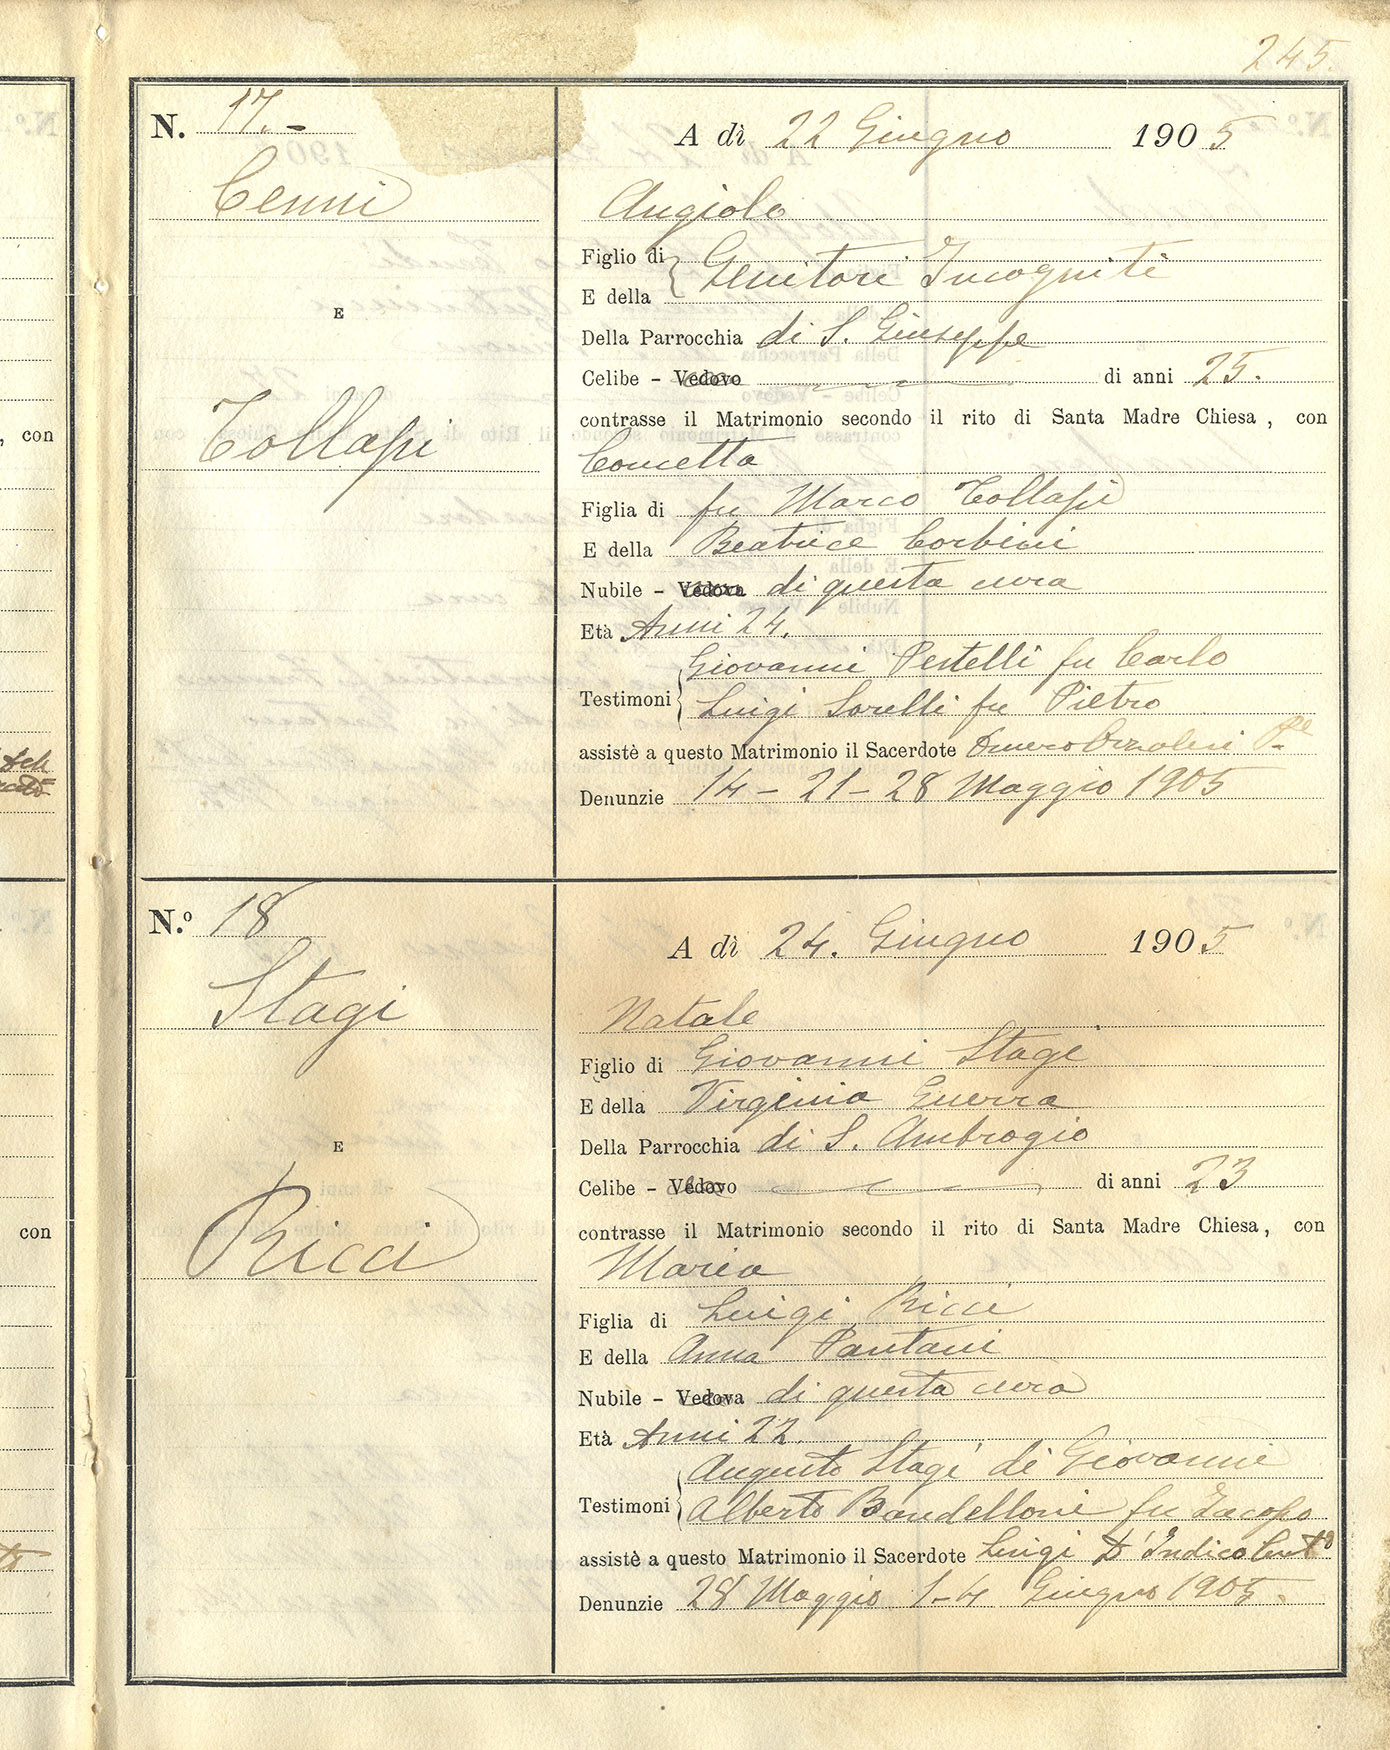 245.
N. 17. -
Cenni
E
Tollapi
A dì 22 Giugno 1905
Angiolo
Figlio di
E della
Genitori Incogniti
Della Parrocchia di S. Giuseppe
Celibe - Vedovo di anni 25.
contrasse il Matrimonio secondo il rito di Santa Madre Chiesa, con
Concetta
Figlia di fu Marco Tollapi
E della Beatrice Corbini
Nubile - Vedova di questa cura
Età Anni 24.
Testimoni
Giovanni Pestelli fu Carlo
Luigi Sorelli fu Pietro
assistè a questo Matrimonio il Sacerdote
Denunzie 14 - 21 - 28 Maggio 1905
N.º 18
Stagi
E
Ricci
A dì 24. Giugno 1905
Natale
Figlio di Giovanni Stagi
E della Virginia Guerra
Della Parrocchia di S. Ambrogio
Celibe - Vedovo di anni 23
contrasse il Matrimonio secondo il rito di Santa Madre Chiesa, con
Maria
Figlia di Luigi Ricci
E della Anna Pantani
Nubile - Vedova di questa cura
Età Anni 22.
Testimoni
Augusto Stagi di Giovanni
Alberto Bandelloni fu Jacopo
assistè a questo Matrimonio il Sacerdote Luigi D'Indico
Denunzie 28 Maggio 1-4 Giugno 1905.
, con
con